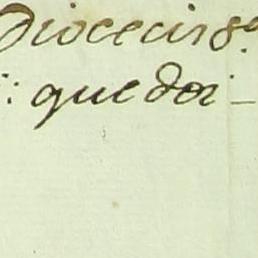 Diocecis g.ˡ
que doi